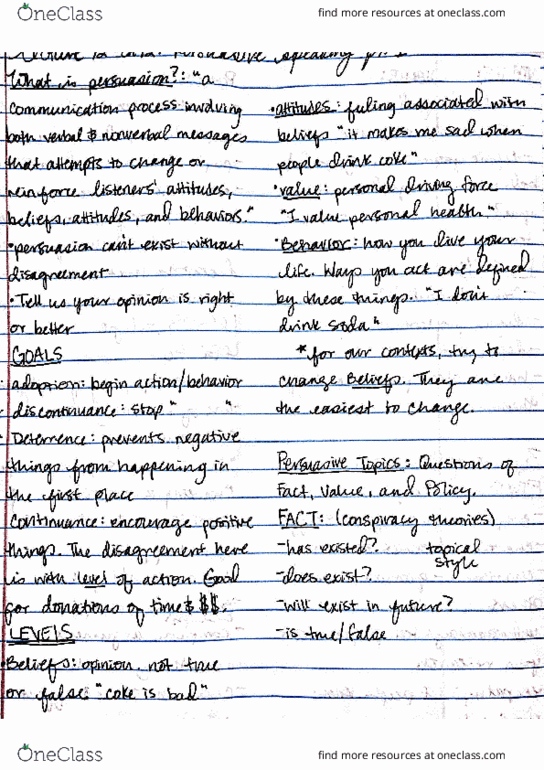 OneClass
find more resources at oneclass.com
speaking pt. 1
What is persuasion?: "a
communication process involving
both verbal & nonverbal messages
that attempts to change or
reinforce listeners' attitudes,
beliefs, attitudes, and behaviors."
•persuasion can't exist without
disagreement
•Tell us your opinion is right
or better
GOALS
adoption: begin action/behavior
discontinuance: stop " "
Deterrence: prevents negative
things from happening in
the first place
Continuance: encourage positive
things. The disagreement here
is with level of action. Good
for donations of time & $$.
LEVELS
•Beliefs: opinion, not true
or false "coke is bad"
•attitudes: feling associated with
beliefs "it makes me sad when
people drink coke"
•value: personal driving force
"I value personal health."
•Behavior: how you live your
life. Ways you act are defined
by these things. "I don't
drink soda"
*for our contexts, try to
change Beliefs. They are
the easiest to change.
Persuasive Topics: Questions of
Fact, Value, and Policy.
FACT: (conspiracy theories)
-has existed? topical
style
-does exist?
-will exist in future?
-is true/false
OneClass
find more resources at oneclass.com